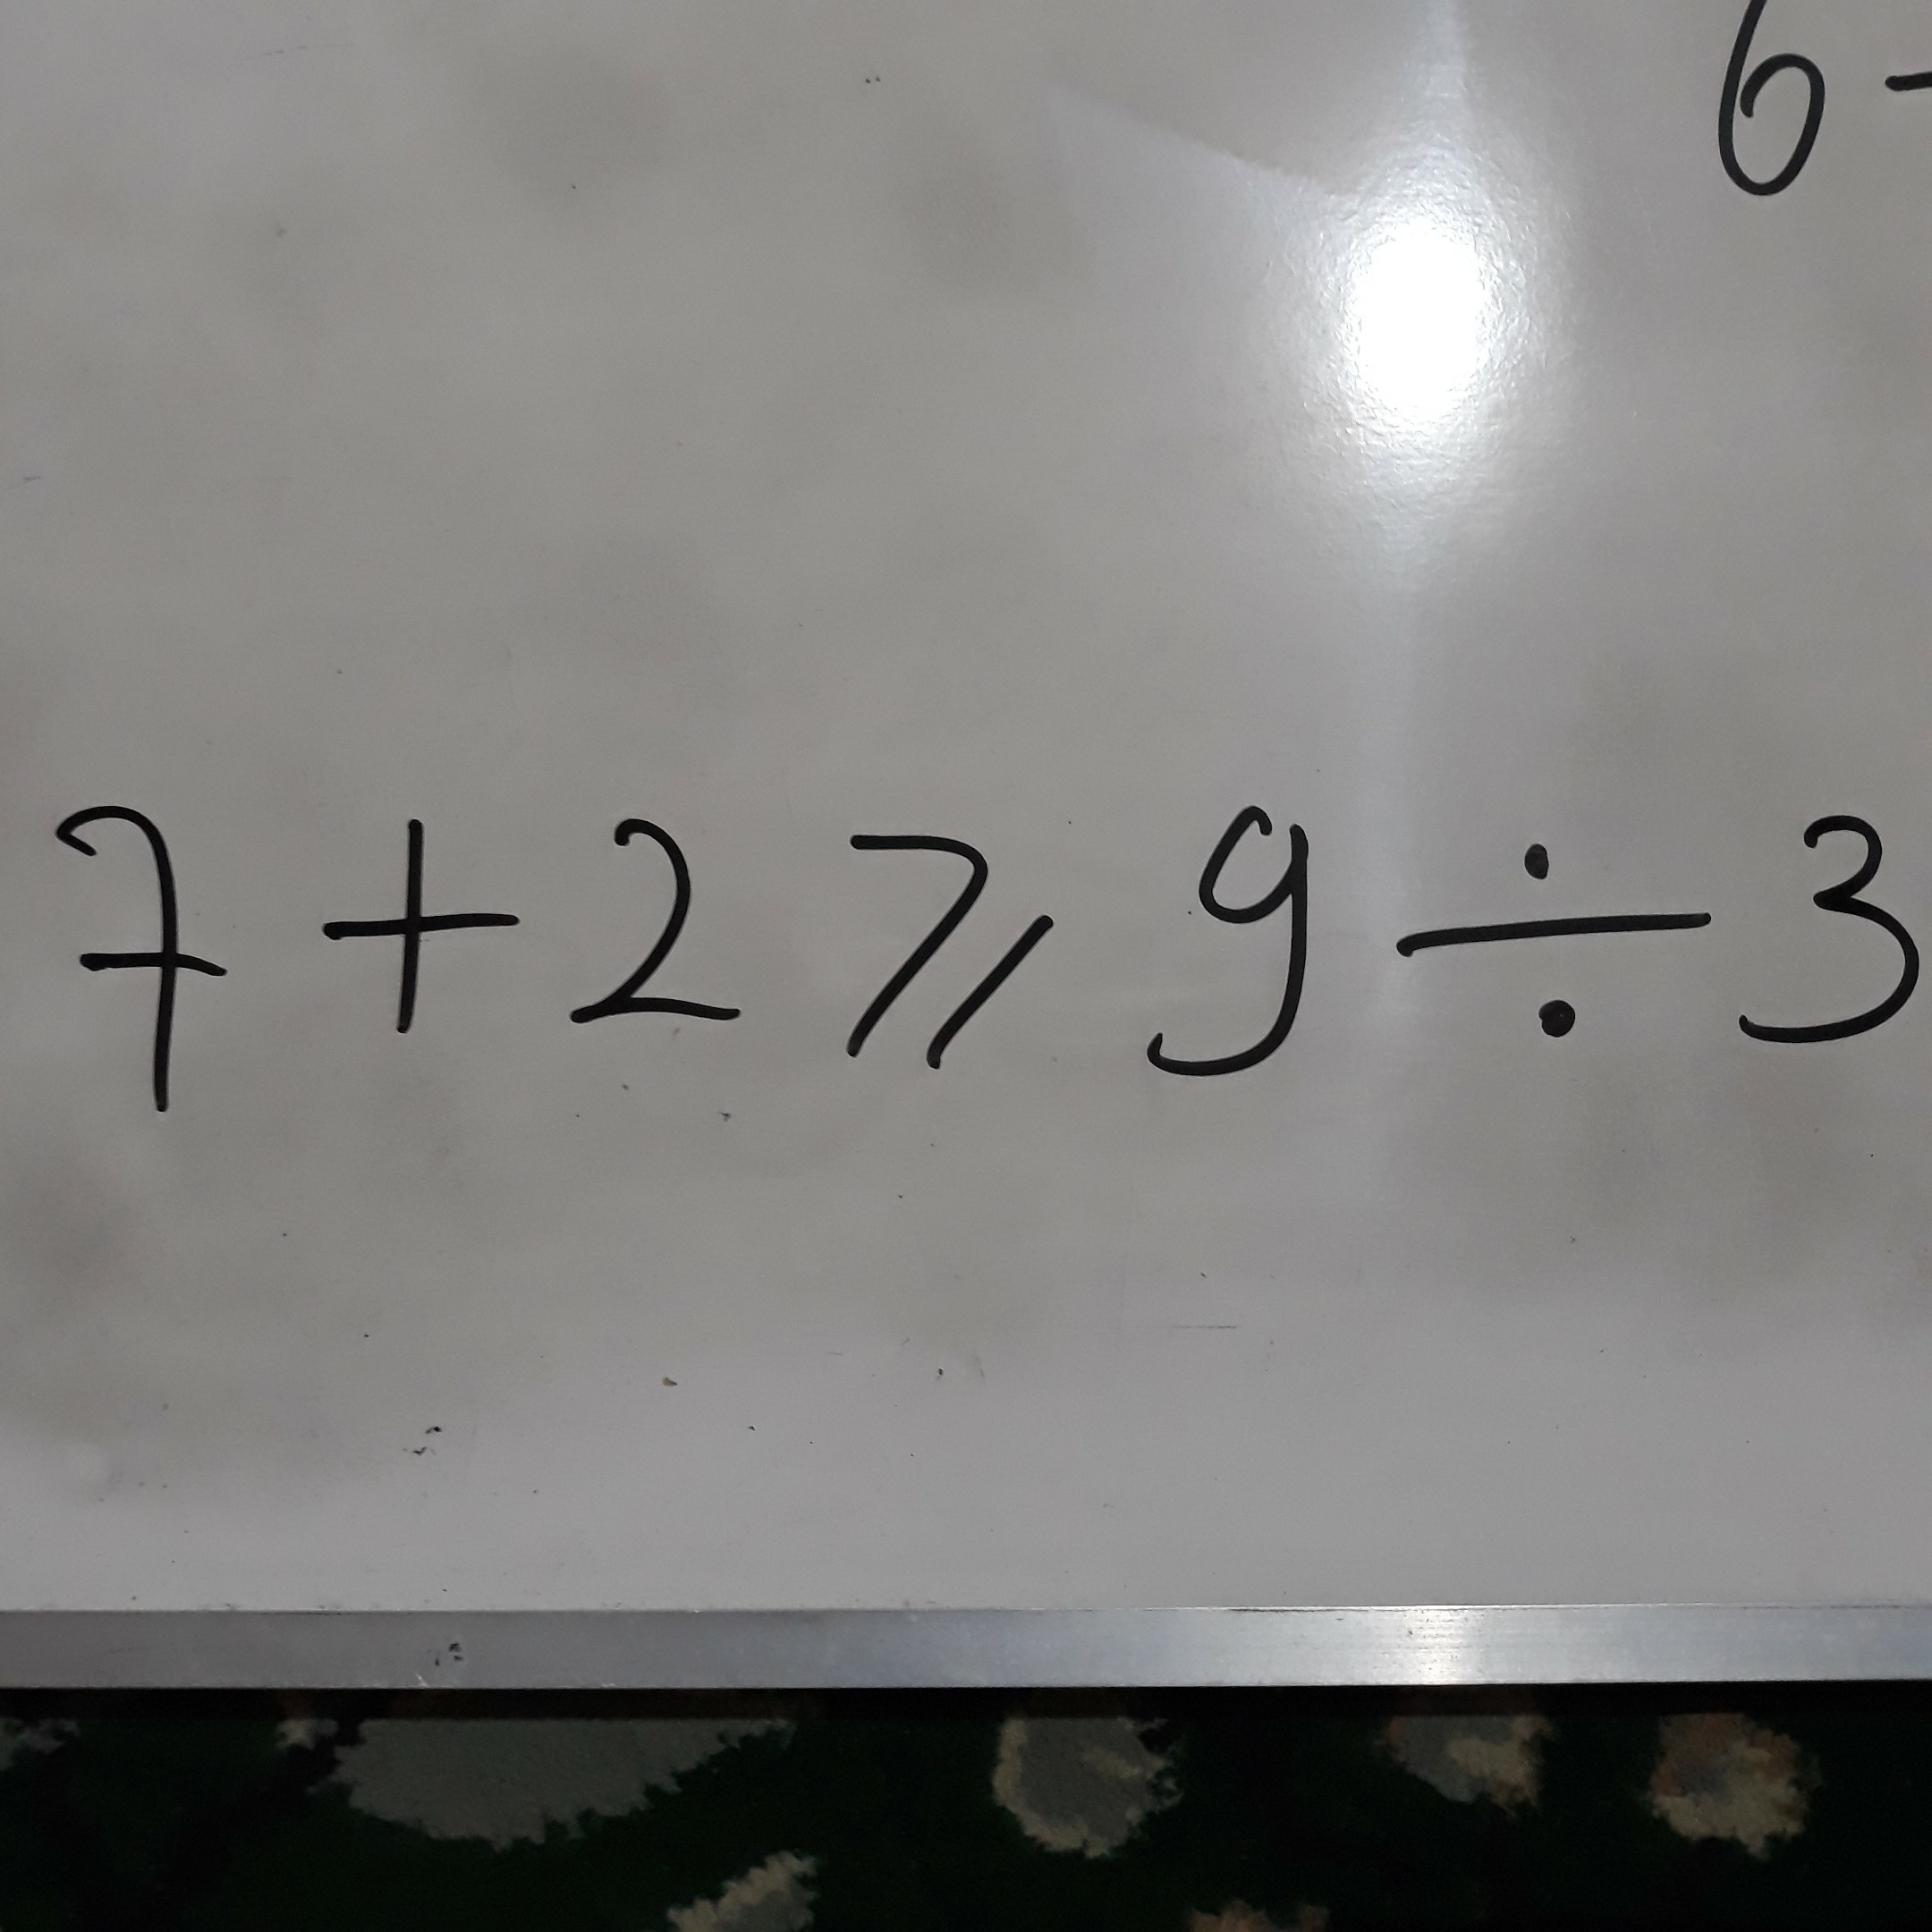 6 -
7 + 2 ⩾ 9 ÷ 3